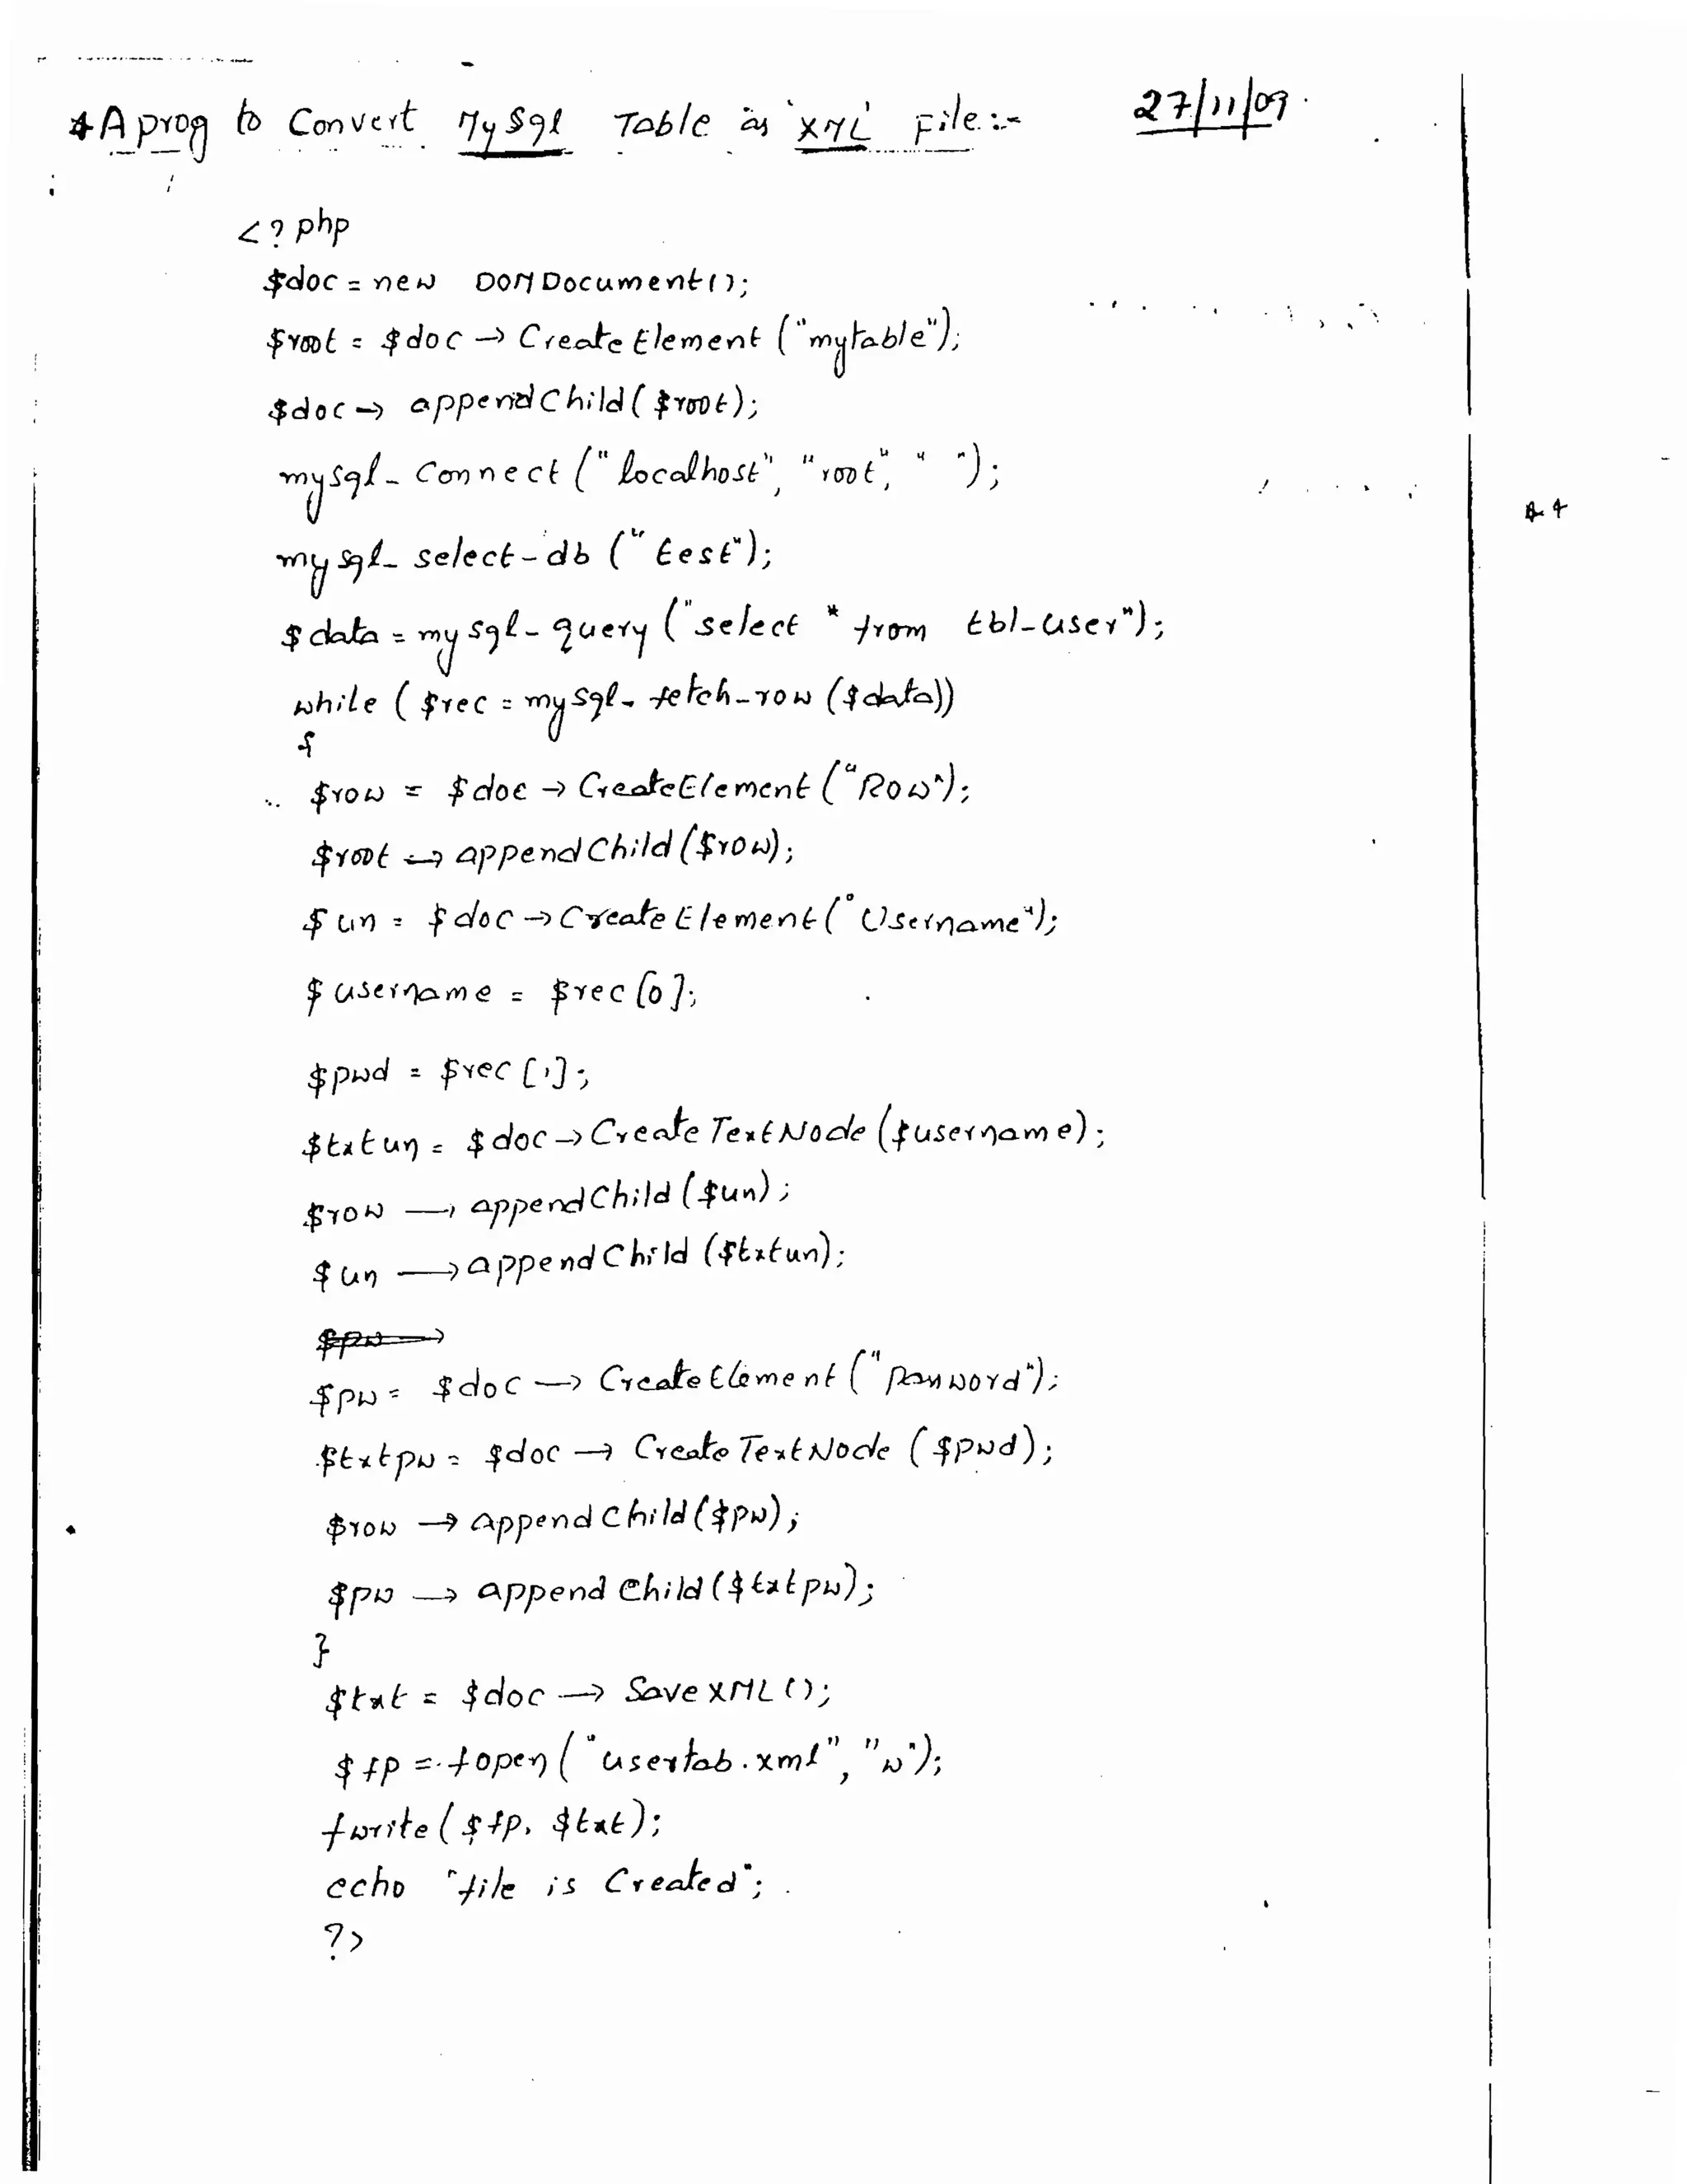 * A prog to Convert MySql Table as 'XML' File :- 27/11/09
<? php
$doc = new DOMDocument();
$root = $doc → CreateElement ("mytable");
$doc → appendChild ($root);
mysql_connect ("localhost", "root", " ");
mysql_select_db ("test");
$data = mysql_query ("select * from tbl_user");
while ($rec = mysql_fetch_row ($data))
{
$row = $doc → CreateElement ("Row");
$root → appendChild ($row);
$un = $doc → CreateElement ("Username");
$username = $rec [0];
$pwd = $rec [1];
$txtun = $doc → CreateTextNode ($username);
$row → appendChild ($un);
$un → appendChild ($txtun);
$pw →
$pw = $doc → CreateElement ("Password");
$txtpw = $doc → CreateTextNode ($pwd);
$row → appendChild ($pw);
$pw → appendChild ($txtpw);
}
$txt = $doc → SaveXML ();
$fp = fopen ("usertab.xml", "w");
fwrite ($fp, $txt);
echo "file is Created";
?>